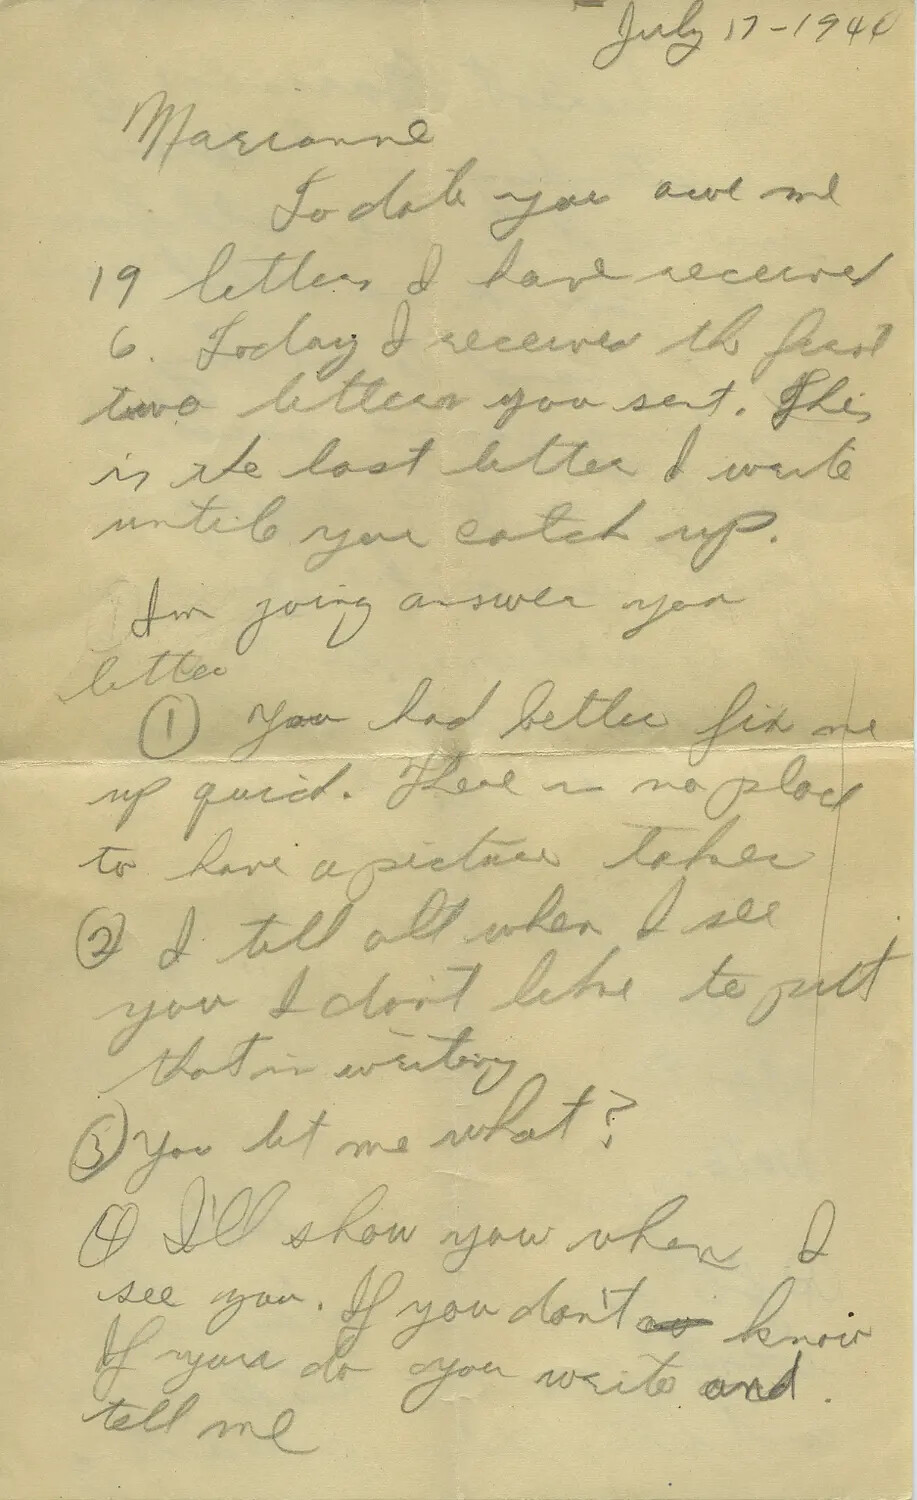 July 17-1944
Marianne
To date you owe me
19 letters I have received
6. Today I received the first
two letters you sent. This
is the last letter I write
until you catch up.
Im going answer your
letter
① You had better fix me
up quick. There is no place
to have a picture taken
② I tell all when I see
you I don't like to putt
that in writing
③ You bet me what?
④ I'll show you when I
see you. If you don't know
If you do you write and.
tell me